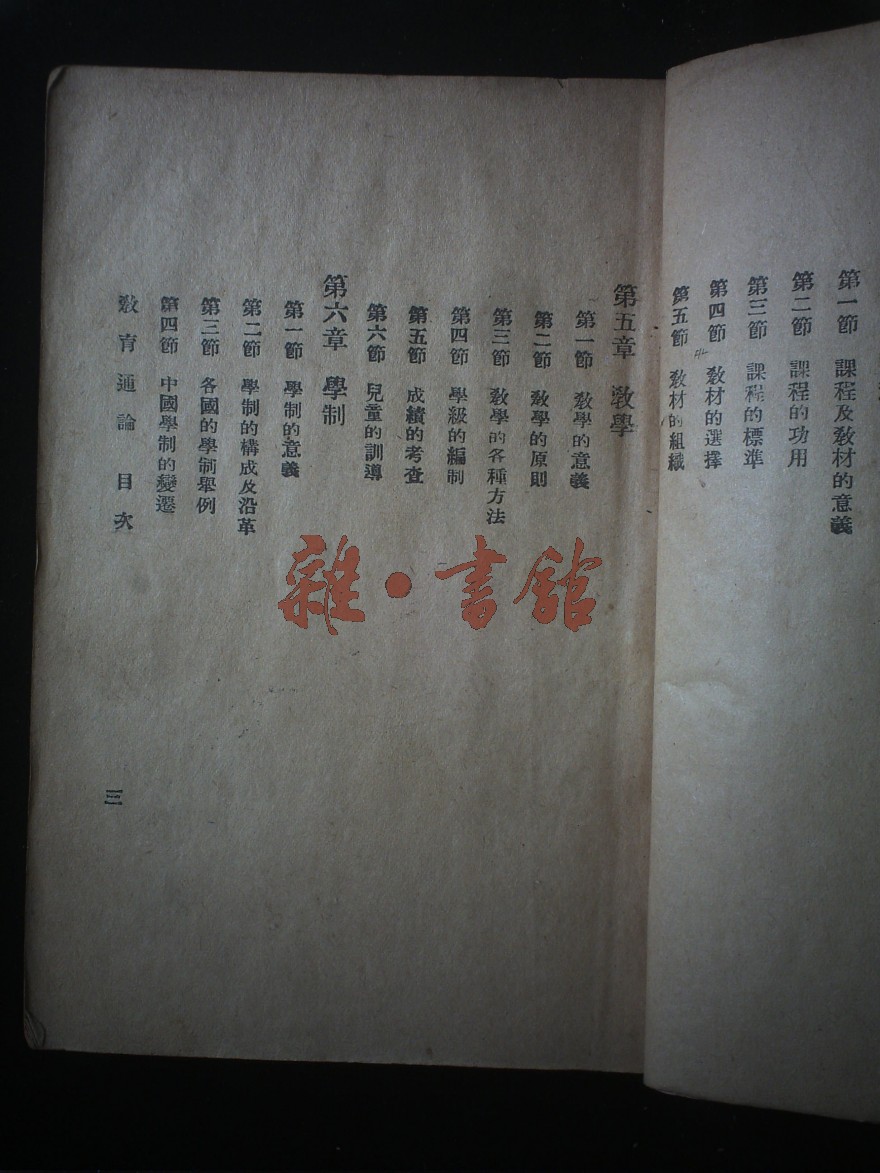 第一節 課程及教材的意義
第二節 課程的功用
第三節 課程的標準
第四節 教材的選擇
第五節 教材的組織
第五章 教學
第一節 教學的意義
第二節 教學的原則
第三節 教學的各種方法
第四節 學級的編制
第五節 成績的考查
第六節 兒童的訓導
第六章 學制
第一節 學制的意義
第二節 學制的構成及沿革
第三節 各國的學制舉例
第四節 中國學制的變遷
教育通論 目次
三
雜·書館